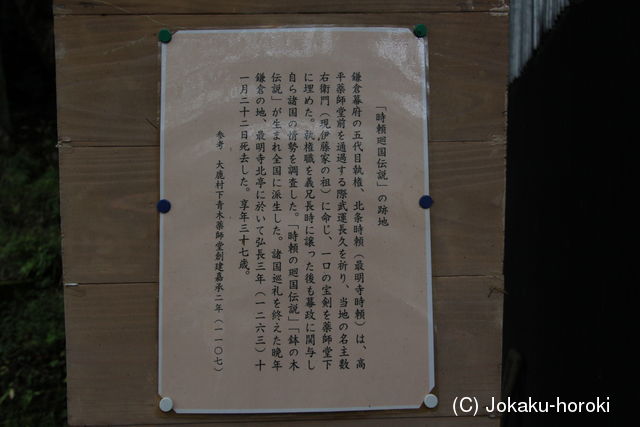 「時頼廻国伝説」の跡地
鎌倉幕府の五代目執権、北条時頼（最明寺時頼）は、高
平薬師堂前を通過する際武運長久を祈り、当地の名主数
右衛門（現伊藤家の祖）に命じ、一口の宝剣を薬師堂下
に埋めた。執権職を義兄長時に譲った後も幕政に関与し
自ら諸国の情勢を調査した。「時頼の廻国伝説」「鉢の木
伝説」が生まれ全国に派生した。諸国巡礼を終えた晩年
鎌倉の地、最明寺北亭に於いて弘長三年（一二六三）十
一月二十二日死去した。享年三十七歳。
参考　大鹿村下青木薬師堂創建嘉承二年（一一〇七）
(C) Jokaku-horoki